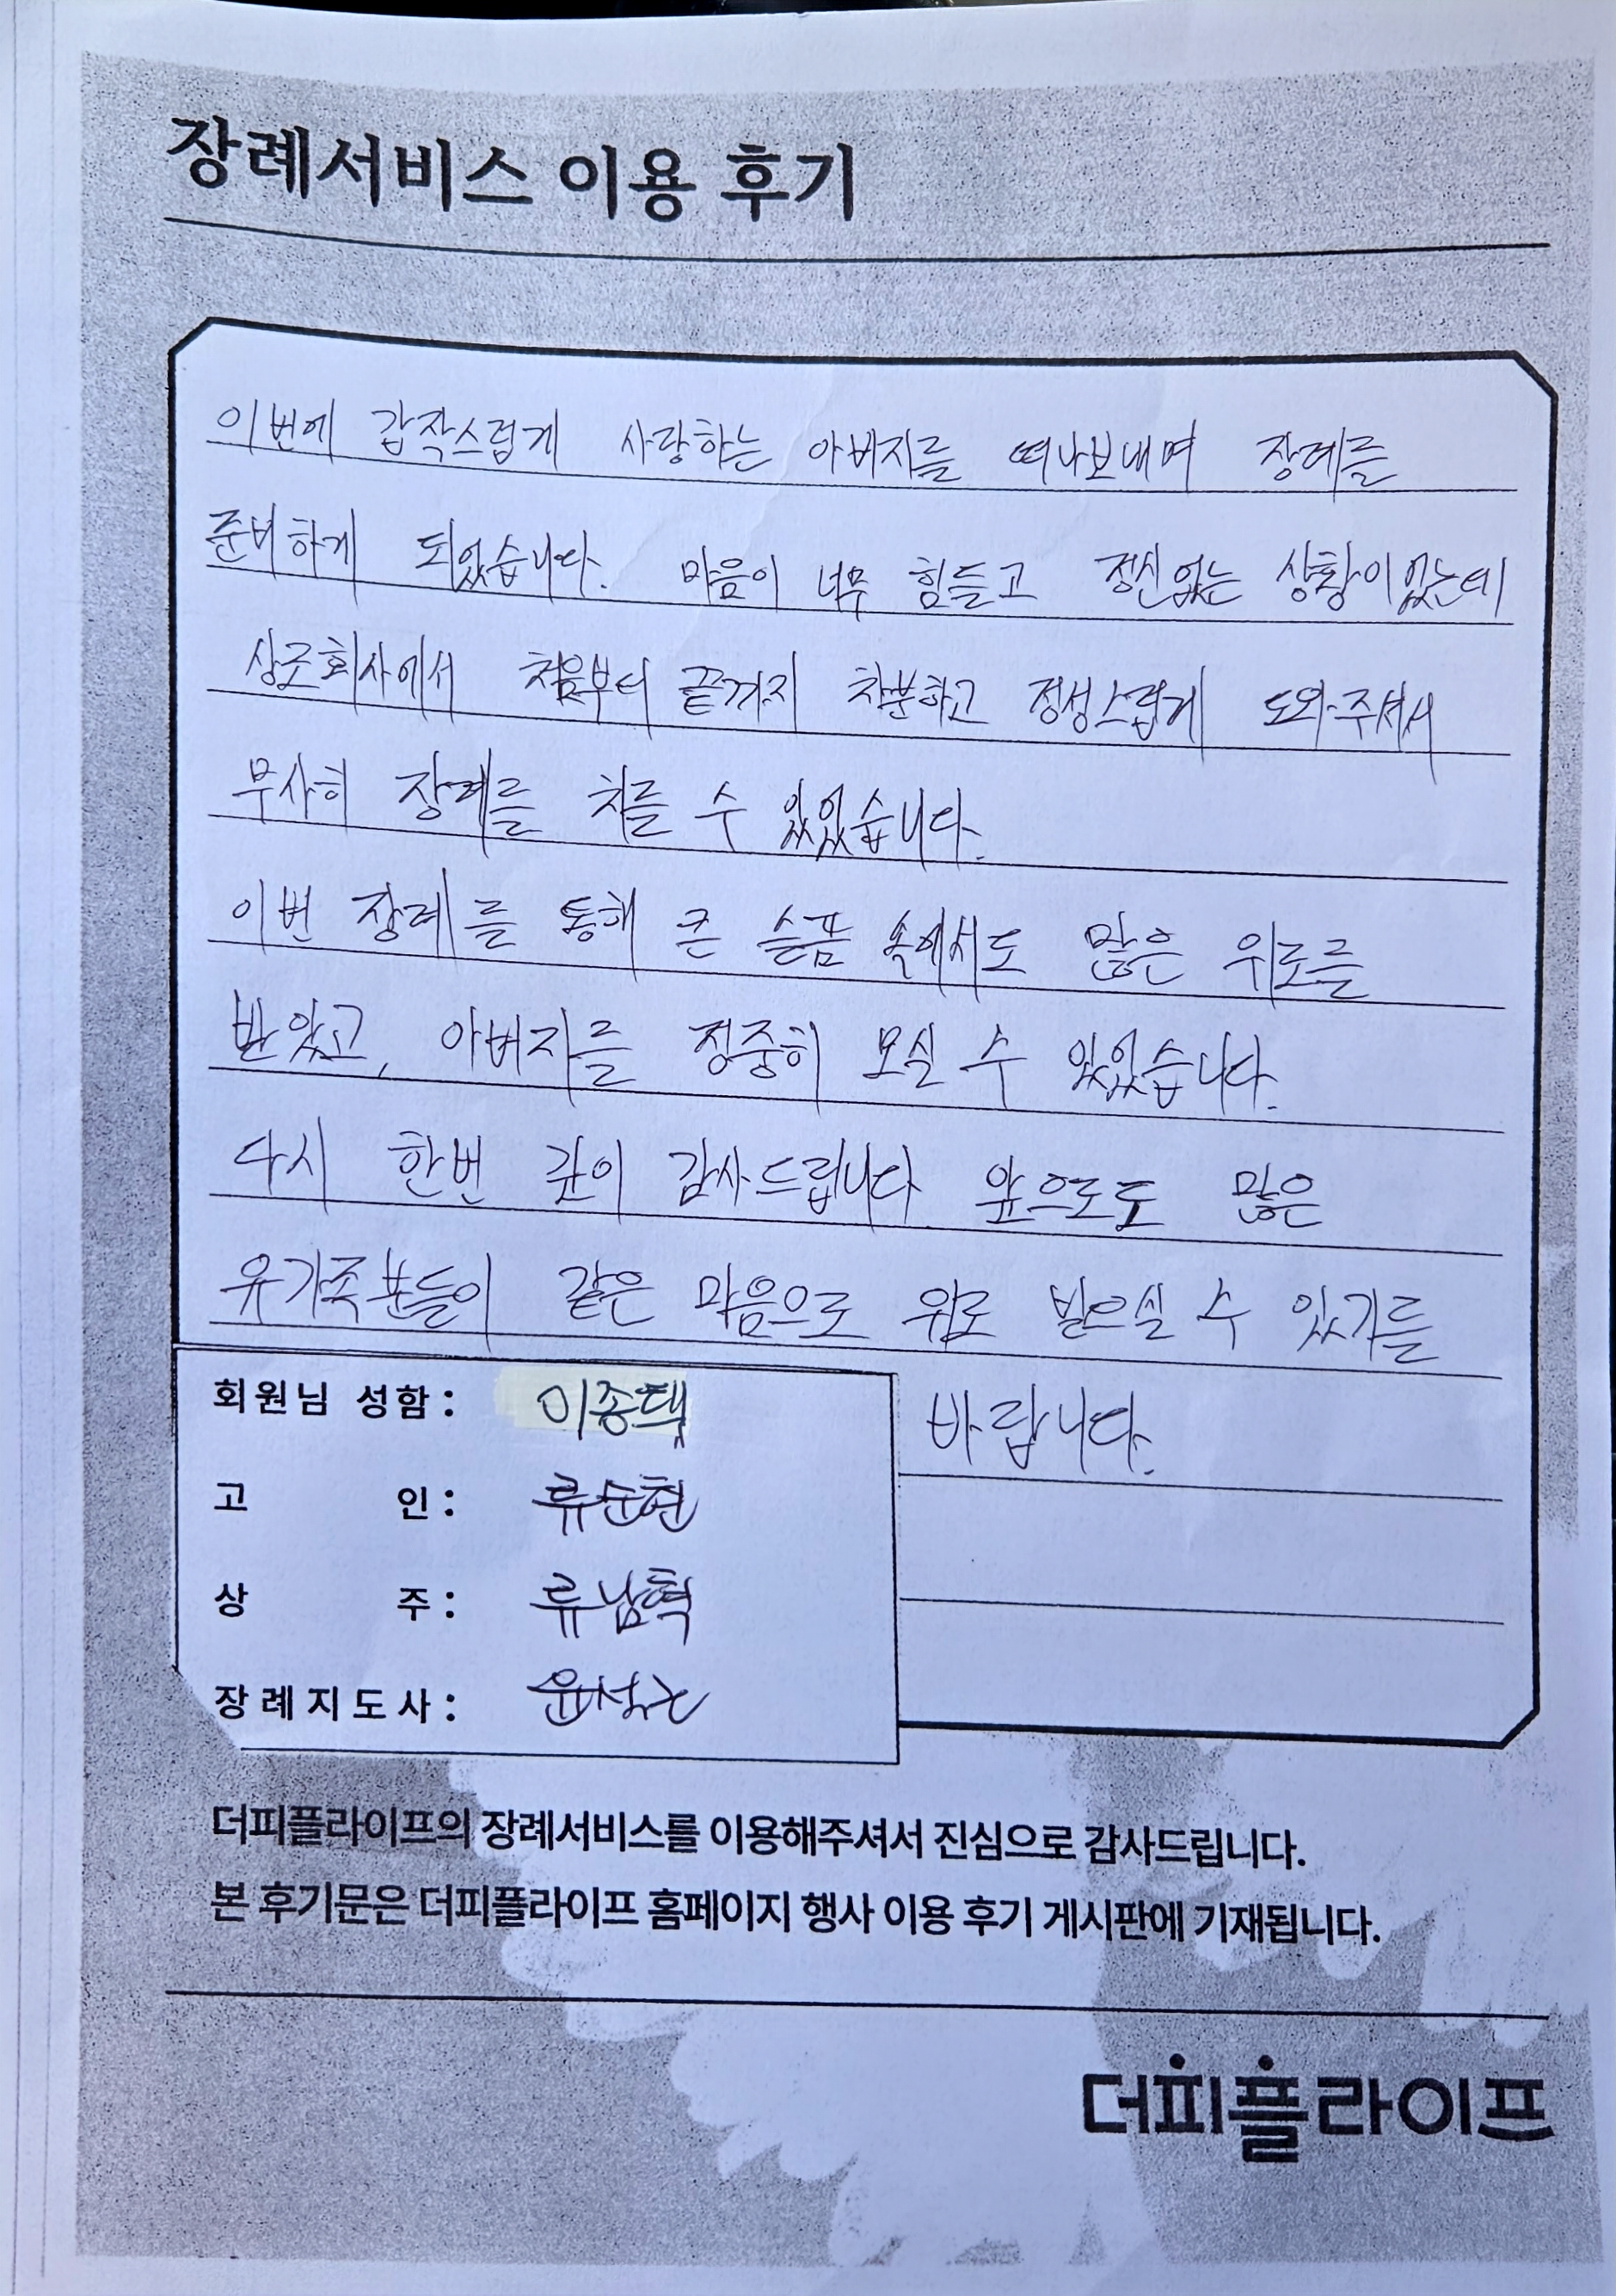 장례서비스 이용 후기
이번에 갑작스럽게 사랑하는 아버지를 떠나보내며 장례를
준비하게 되었습니다. 마음이 너무 힘들고 정신없는 상황이었는데
상조회사에서 처음부터 끝까지 차분하고 정성스럽게 도와주셔서
무사히 장례를 치를 수 있었습니다.
이번 장례를 통해 큰 슬픔 속에서도 많은 위로를
받았고, 아버지를 정중히 모실 수 있었습니다.
다시 한번 깊이 감사드립니다 앞으로도 많은
유가족분들이 같은 마음으로 위로 받으실 수 있기를
바랍니다.
회원님 성함: 이종택
고 인: 류순현
상 주: 류남혁
장례지도사:
더피플라이프의 장례서비스를 이용해주셔서 진심으로 감사드립니다.
본 후기문은 더피플라이프 홈페이지 행사 이용 후기 게시판에 기재됩니다.
더피플라이프